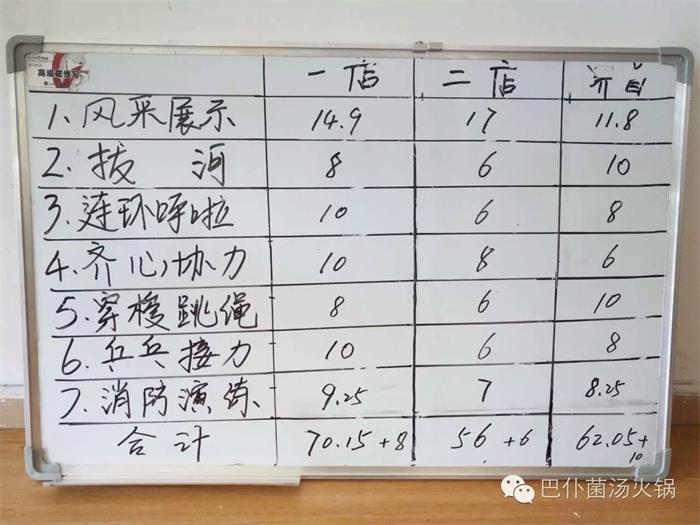 高级磁性写
一店 二店
1.风采展示 14.9 17 11.8
2.拔 河 8 6 10
3.连环呼啦 10 6 8
4.齐心协力 10 8 6
5.穿梭跳绳 8 6 10
6.乒乓接力 10 6 8
7.消防演练 9.25 7 8.25
合计 70.15+8 56+6 62.05+10
巴仆菌汤火锅